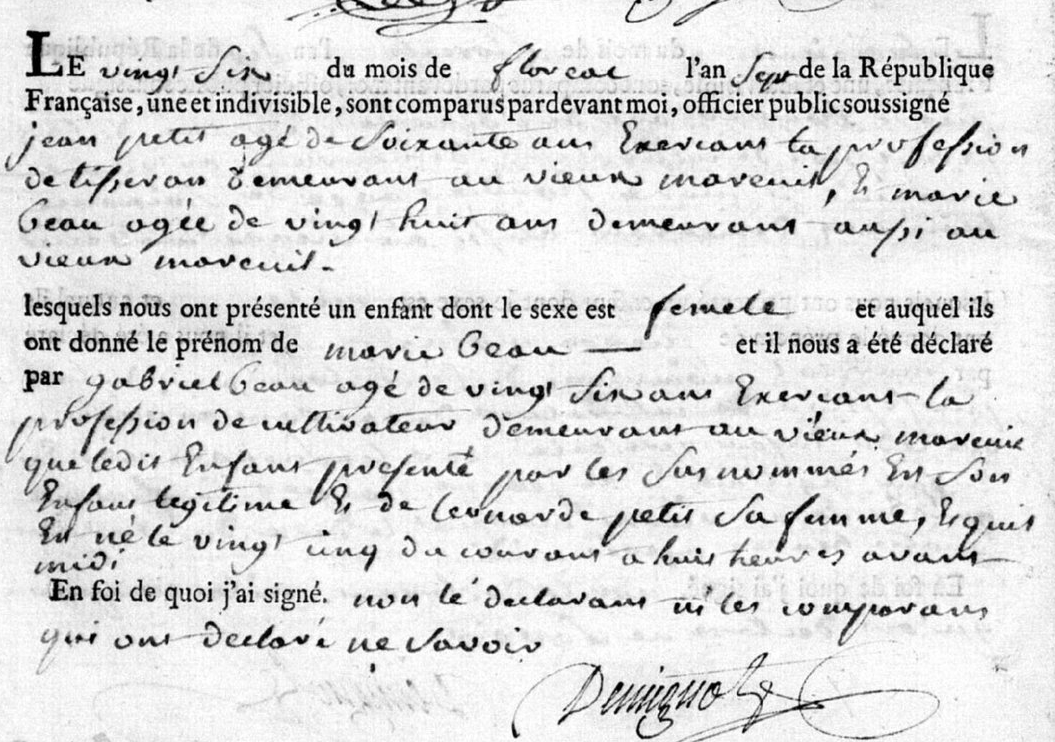 LE vingt six du mois de floreal l'an Sept de la République
Française, une et indivisible, sont comparus pardevant moi, officier public soussigné
jean petit agé de Soixante ans Exercant la profession
de tisseran demeurant au vieux mareuil, Et marie
beau agée de vingt huit ans demeurant aussi au
vieux mareuil.
lesquels nous ont présenté un enfant dont le sexe est femele et auquel ils
ont donné le prénom de marie beau — et il nous a été déclaré
par gabriel beau agé de vingt six ans Exercant la
profession de cultivateur demeurant au vieux mareuil
que ledit Enfant presenté par les Susnommés Est Son
Enfant legitime Et de leonarde petit Sa femme, Et quil
Est né le vingt cinq du courant a huit heures avant
midi
En foi de quoi j'ai signé. non le declarant ni les comparans
qui ont declaré ne Savoir